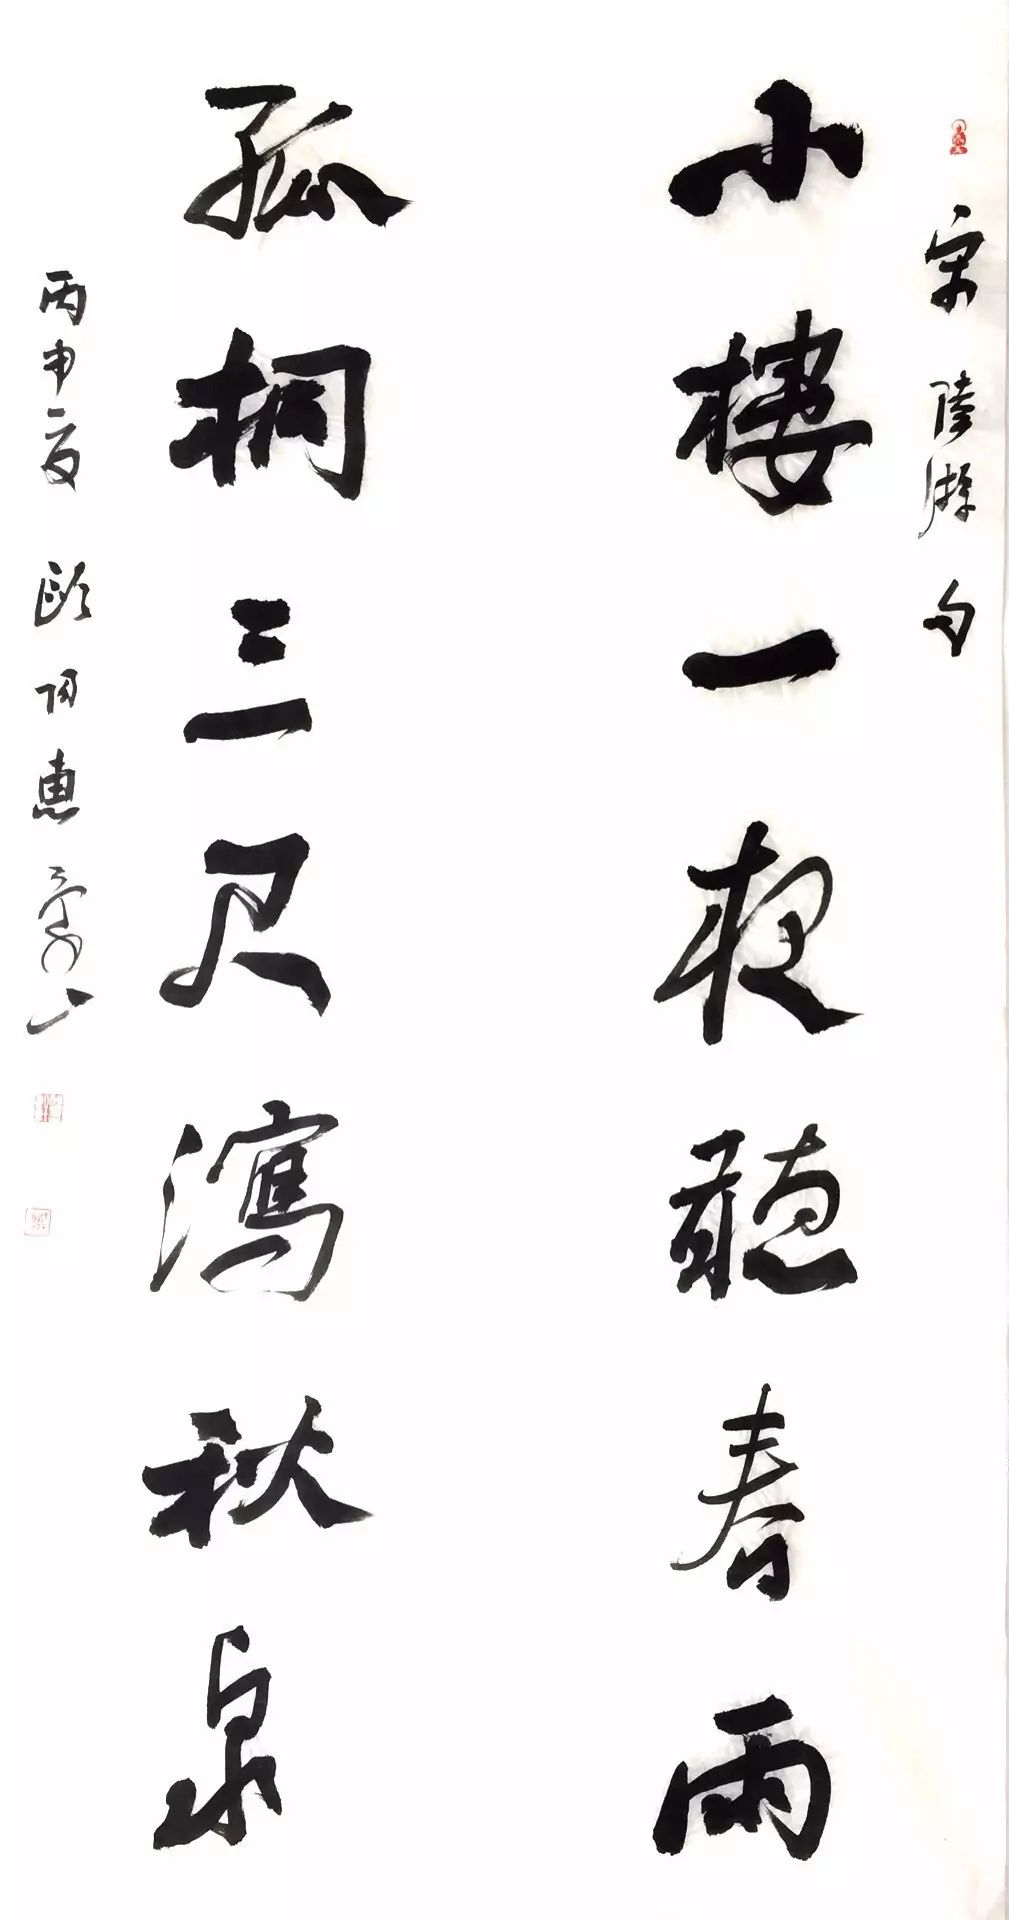 宋 陸游 句
小樓一夜聽春雨
孤桐三尺瀉秋泉
丙申夏 歐陽惠